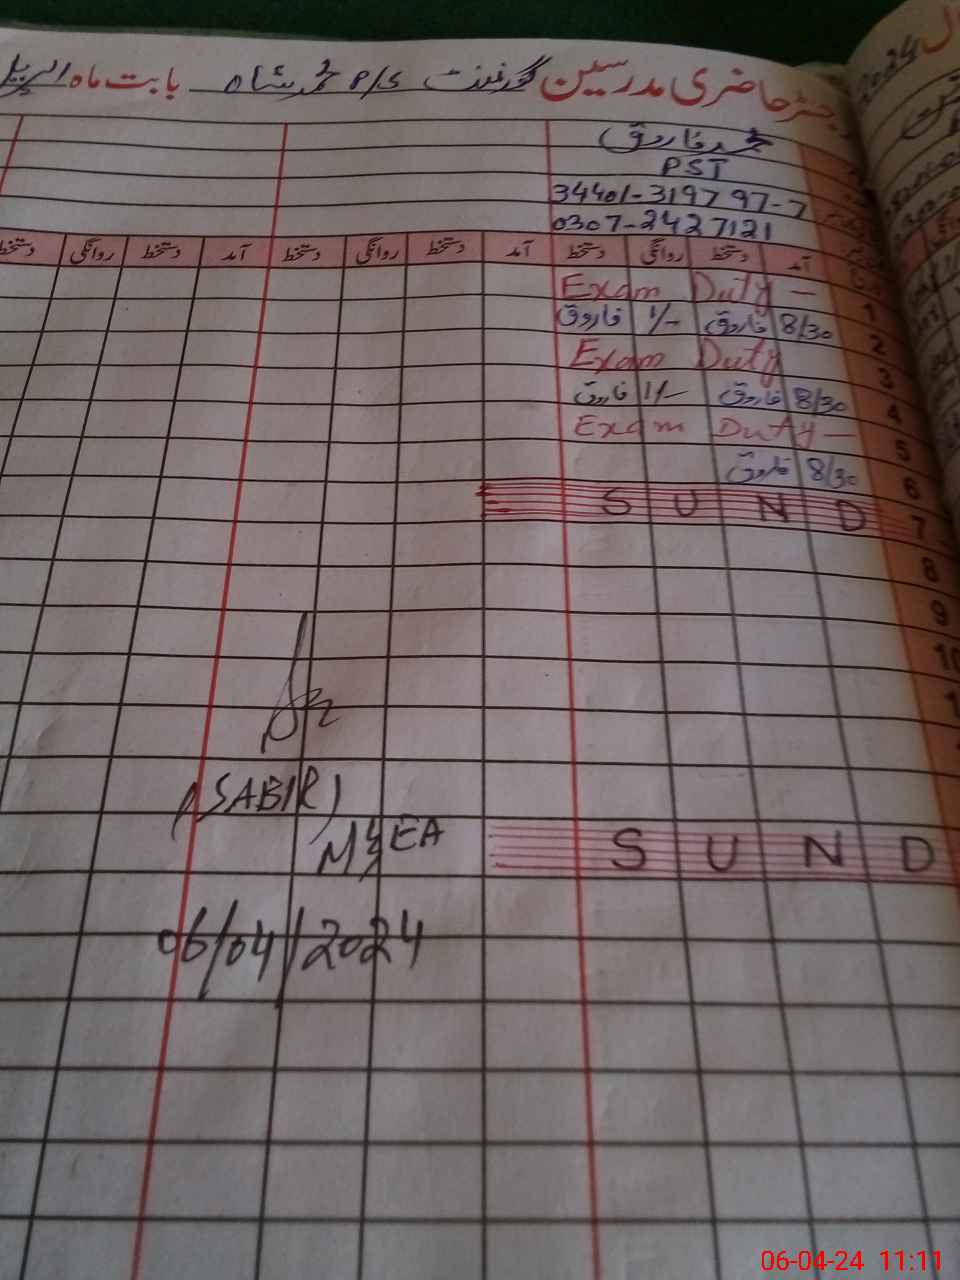 رجسٹر حاضری مدرسین گورنمنٹ P/S محمد شاہ بابت ماہ اپریل
2024
محمد فاروق
PST
34401-3197 97-7
0307-2427121
آمد دستخط روانگی دستخط آمد دستخط روانگی دستخط آمد دستخط روانگی دستخط
Exam Duty -
1
8/30 فاروق 1/- فاروق
2
Exam Duty
3
8/30 فاروق 1/- فاروق
4
Exam Duty -
5
8/30 فاروق
6
S U N D
7
8
9
10
(SABIR)
M&EA
S U N D
06/04/2024
06-04-24 11:11